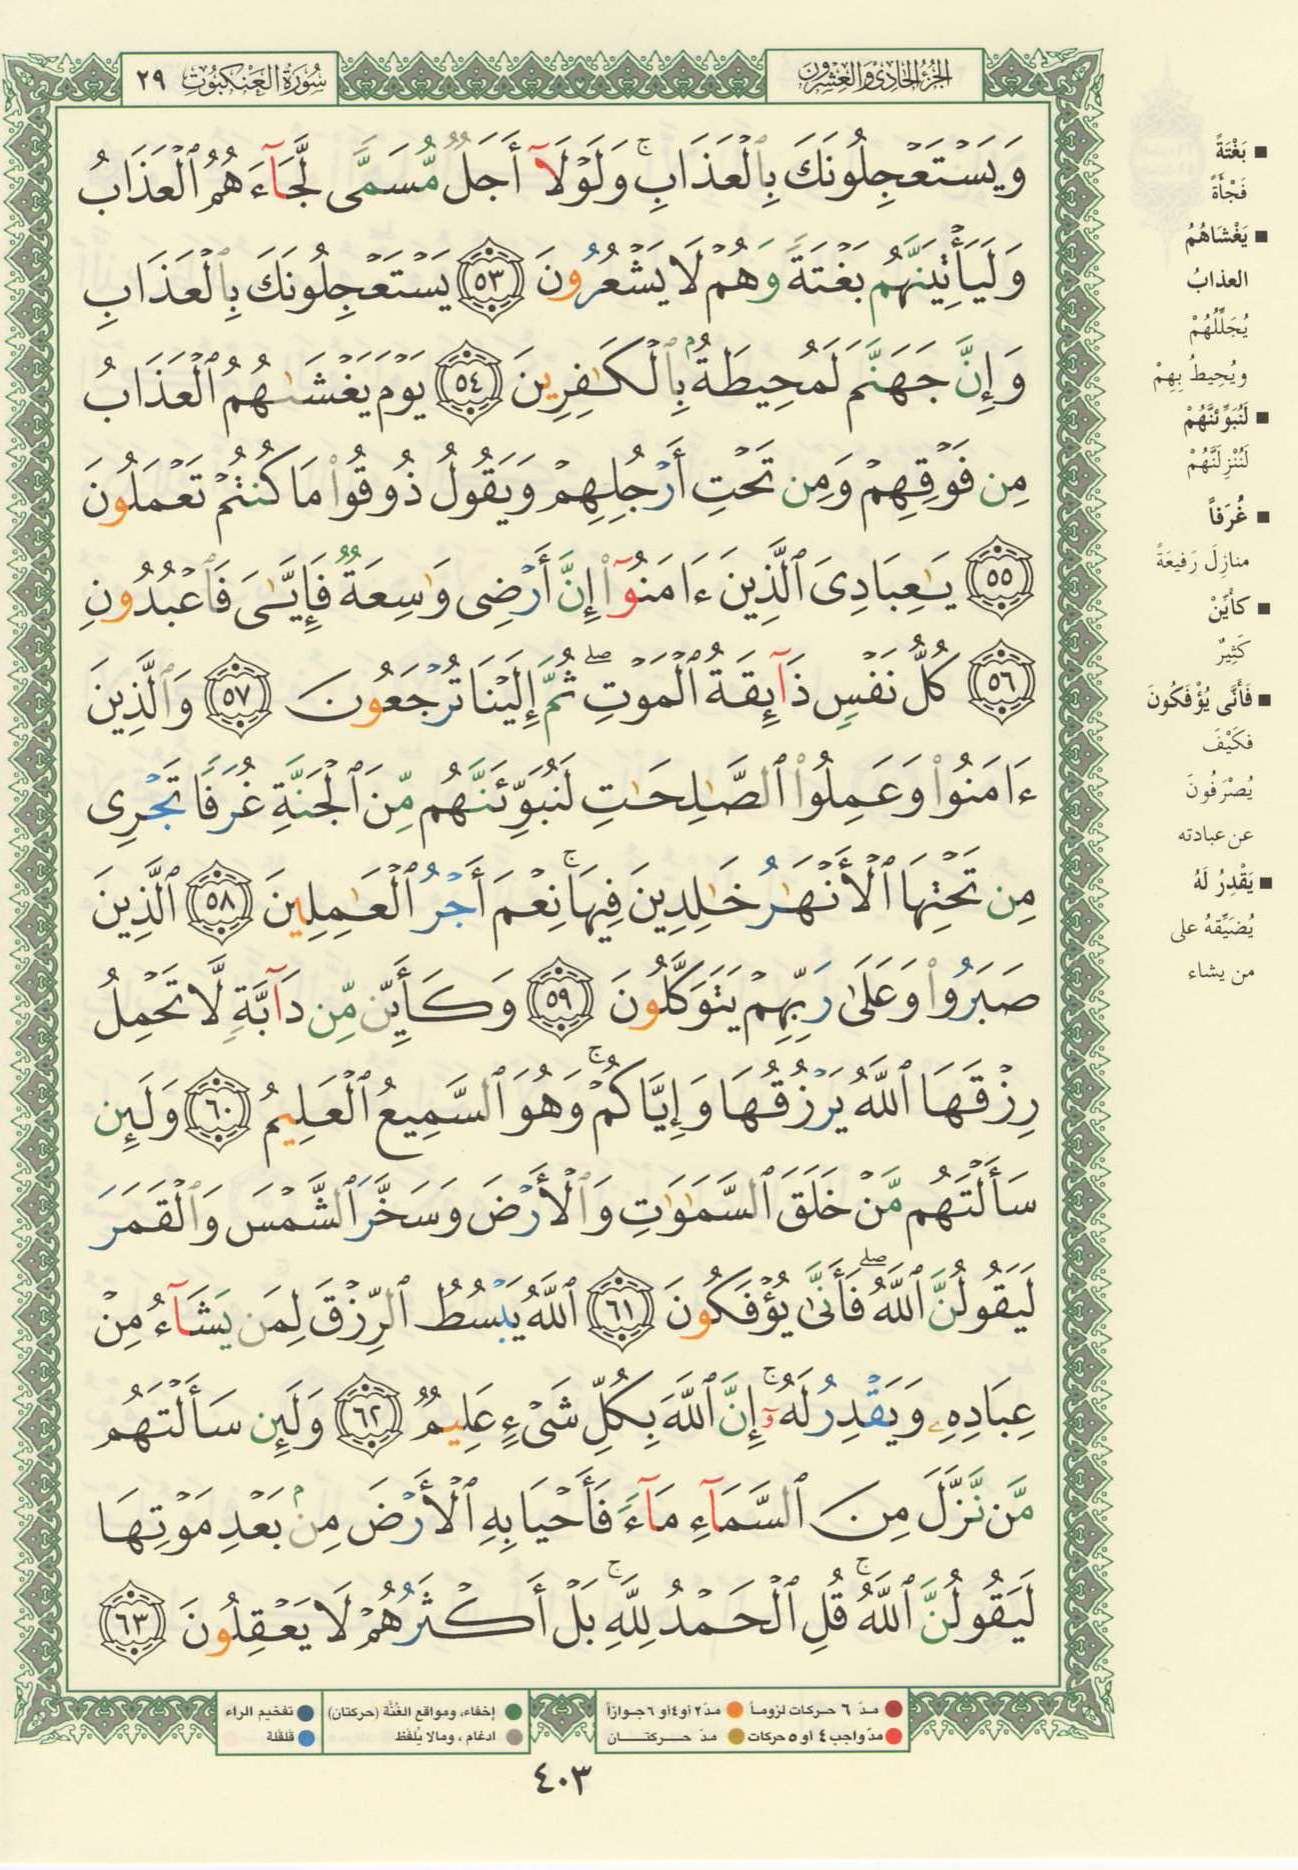 الجزء الحادي والعشرون
سُورَةُ العَنكبُوتِ ٢٩
وَيَسْتَعْجِلُونَكَ بِٱلْعَذَابِ ۚ وَلَوْلَآ أَجَلٌ مُّسَمًّى لَّجَآءَهُمُ ٱلْعَذَابُ
وَلَيَأْتِيَنَّهُم بَغْتَةً وَهُمْ لَا يَشْعُرُونَ ٥٣ يَسْتَعْجِلُونَكَ بِٱلْعَذَابِ
وَإِنَّ جَهَنَّمَ لَمُحِيطَةٌۢ بِٱلْكَـٰفِرِينَ ٥٤ يَوْمَ يَغْشَىٰهُمُ ٱلْعَذَابُ
مِن فَوْقِهِمْ وَمِن تَحْتِ أَرْجُلِهِمْ وَيَقُولُ ذُوقُوا۟ مَا كُنتُمْ تَعْمَلُونَ
٥٥ يَـٰعِبَادِىَ ٱلَّذِينَ ءَامَنُوٓا۟ إِنَّ أَرْضِى وَٰسِعَةٌ فَإِيَّـٰىَ فَٱعْبُدُونِ
٥٦ كُلُّ نَفْسٍ ذَآئِقَةُ ٱلْمَوْتِ ۖ ثُمَّ إِلَيْنَا تُرْجَعُونَ ٥٧ وَٱلَّذِينَ
ءَامَنُوا۟ وَعَمِلُوا۟ ٱلصَّـٰلِحَـٰتِ لَنُبَوِّئَنَّهُم مِّنَ ٱلْجَنَّةِ غُرَفًا تَجْرِى
مِن تَحْتِهَا ٱلْأَنْهَـٰرُ خَـٰلِدِينَ فِيهَا ۚ نِعْمَ أَجْرُ ٱلْعَـٰمِلِينَ ٥٨ ٱلَّذِينَ
صَبَرُوا۟ وَعَلَىٰ رَبِّهِمْ يَتَوَكَّلُونَ ٥٩ وَكَأَيِّن مِّن دَآبَّةٍ لَّا تَحْمِلُ
رِزْقَهَا ٱللَّهُ يَرْزُقُهَا وَإِيَّاكُمْ ۚ وَهُوَ ٱلسَّمِيعُ ٱلْعَلِيمُ ٦٠ وَلَئِن
سَأَلْتَهُم مَّنْ خَلَقَ ٱلسَّمَـٰوَٰتِ وَٱلْأَرْضَ وَسَخَّرَ ٱلشَّمْسَ وَٱلْقَمَرَ
لَيَقُولُنَّ ٱللَّهُ ۖ فَأَنَّىٰ يُؤْفَكُونَ ٦١ ٱللَّهُ يَبْسُطُ ٱلرِّزْقَ لِمَن يَشَآءُ مِنْ
عِبَادِهِۦ وَيَقْدِرُ لَهُۥٓ ۚ إِنَّ ٱللَّهَ بِكُلِّ شَىْءٍ عَلِيمٌ ٦٢ وَلَئِن سَأَلْتَهُم
مَّن نَّزَّلَ مِنَ ٱلسَّمَآءِ مَآءً فَأَحْيَا بِهِ ٱلْأَرْضَ مِنۢ بَعْدِ مَوْتِهَا
لَيَقُولُنَّ ٱللَّهُ ۚ قُلِ ٱلْحَمْدُ لِلَّهِ ۚ بَلْ أَكْثَرُهُمْ لَا يَعْقِلُونَ ٦٣
■ بَغْتَةً
فَجْأَةً
■ يَغْشَاهُمُ
العذابُ
يُجَلِّلُهُمْ
ويُحِيطُ بِهِمْ
■ لَنُبَوِّئَنَّهُمْ
لَنُنْزِلَنَّهُمْ
■ غُرَفاً
منازِلَ رَفيعَةً
■ كأيِّنْ
كَثِيرٌ
■ فَأَنَّى يُؤْفَكُونَ
فكَيْفَ
يُصْرَفُونَ
عن عبادته
■ يَقْدِرُ لَهُ
يُضَيِّقهُ على
من يشاء
مدّ ٦ حركات لزوماً ● مدّ ٢ أو ٤ أو ٦ جوازاً
مدّ واجب ٤ أو ٥ حركات ● مدّ حركتان
إخفاء، ومواقع الغُنَّة (حركتان)
ادغام ، ومالا يُلفَظ
تفخيم الراء
قلقلة
٤٠٣